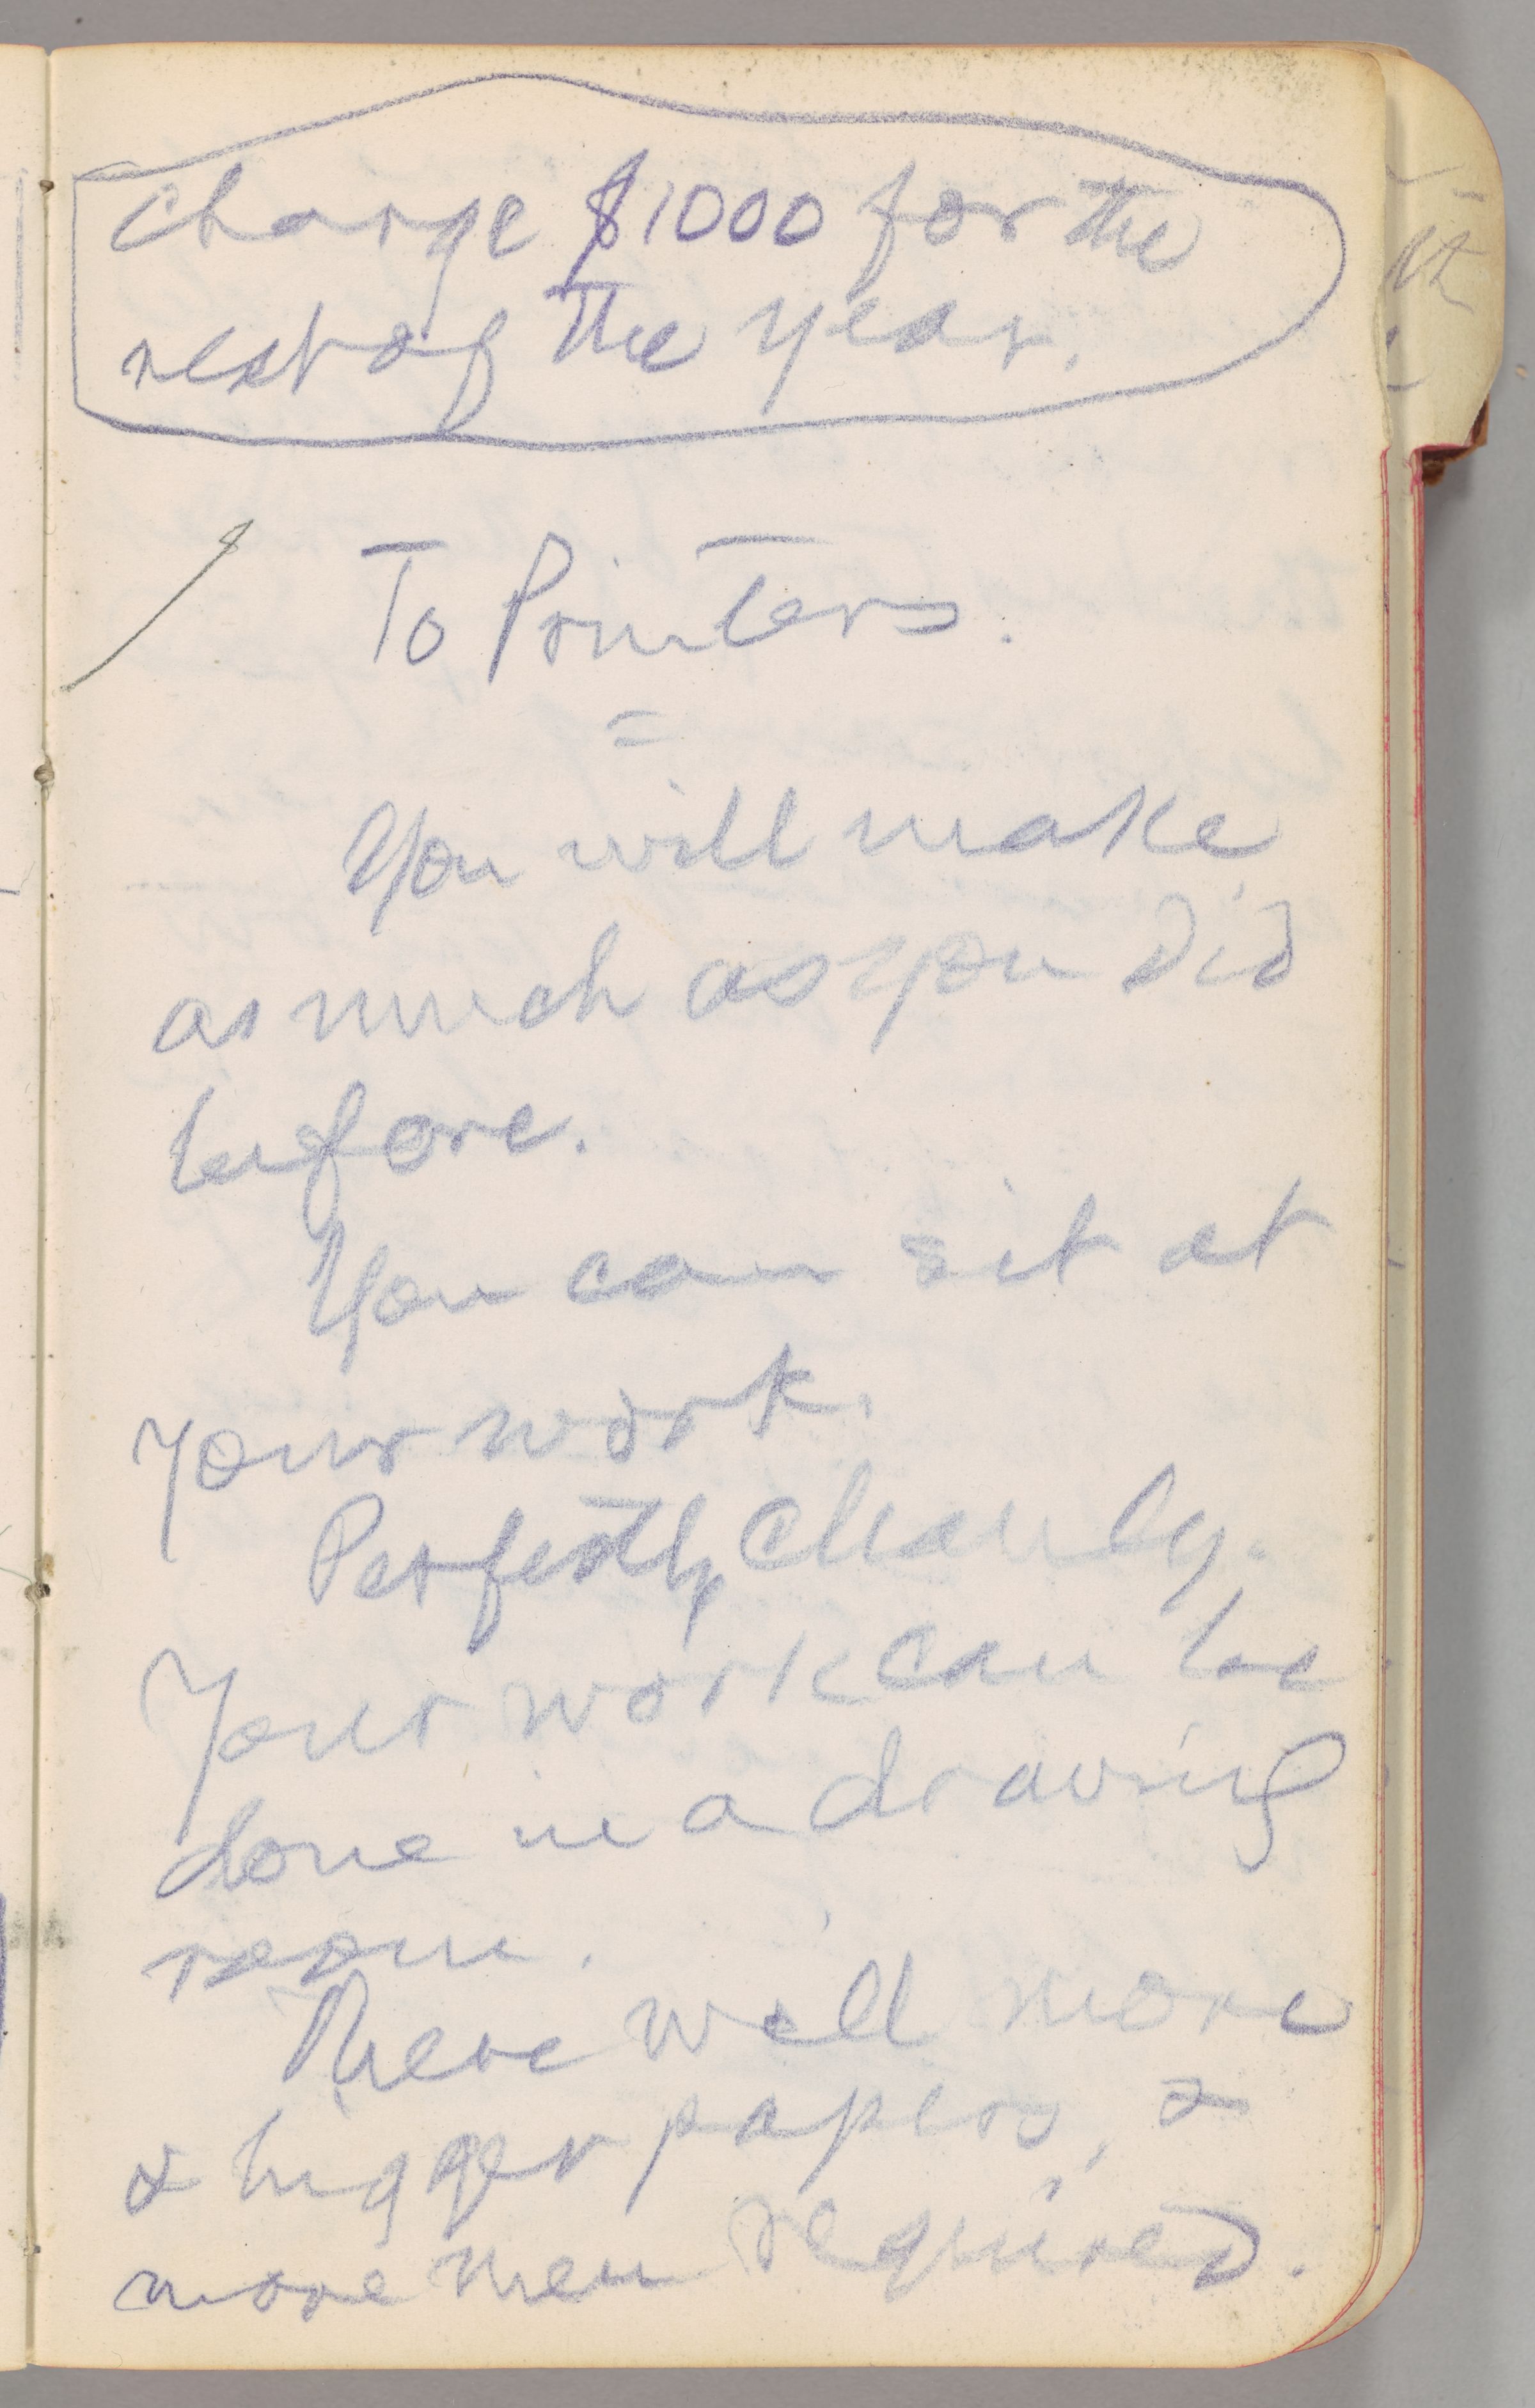 Charge $1000 for the
rest of the year.
To Printers.
=
You will make
as much as you did
before.
You can sit at
your work.
Perfectly cleanly.
Your work can be
done in a drawing
room.
There will more
& bigger papers, &
more men required.